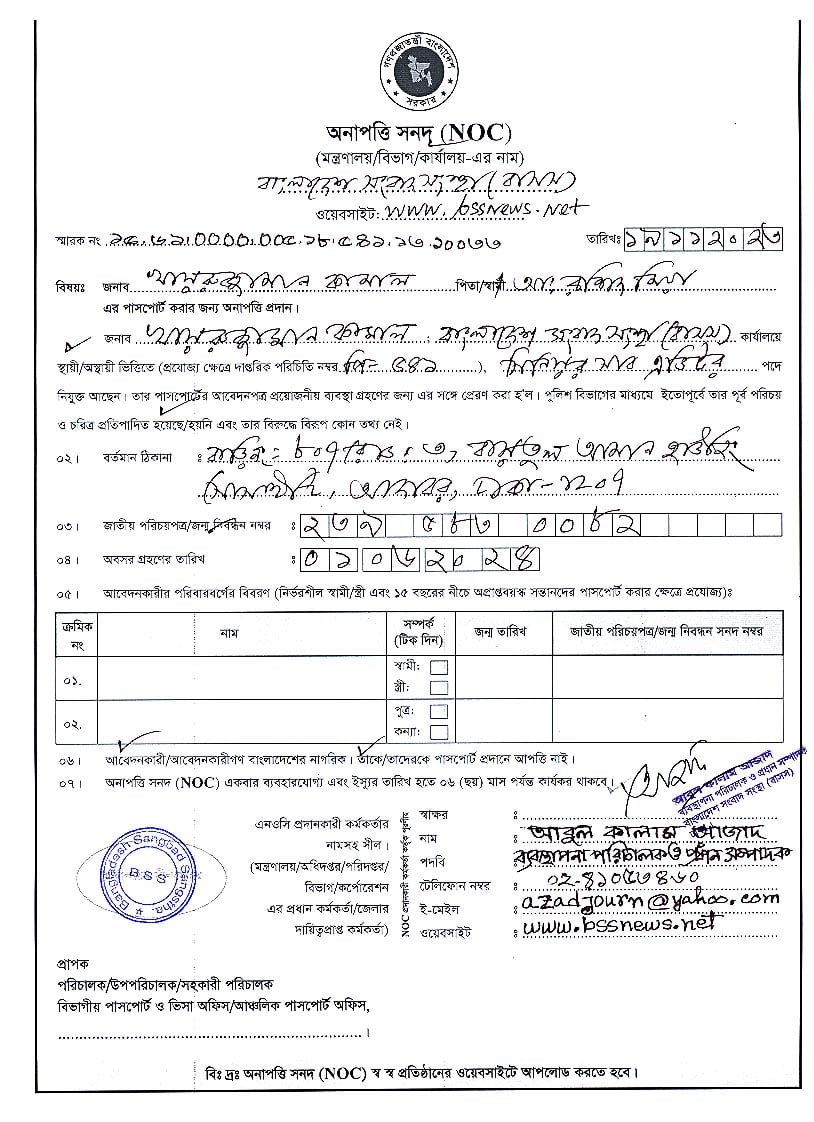 গণপ্রজাতন্ত্রী বাংলাদেশ
সরকার
অনাপত্তি সনদ (NOC)
(মন্ত্রণালয়/বিভাগ/কার্যালয়-এর নাম)
বাংলাদেশ সংবাদ সংস্থা (বাসস)
ওয়েবসাইট: www.bssnews.net
স্মারক নং
তারিখঃ
বিষয়ঃ জনাব কামাল পিতা/স্বামী
এর পাসপোর্ট করার জন্য অনাপত্তি প্রদান।
জনাব কামাল, বাংলাদেশ সংবাদ সংস্থা (বাসস) কার্যালয়ে
স্থায়ী/অস্থায়ী ভিত্তিতে (প্রযোজ্য ক্ষেত্রে দাপ্তরিক পরিচিতি নম্বর পি- ৫৪১), সিনিয়র সাব এডিটর পদে
নিযুক্ত আছেন। তার পাসপোর্টের আবেদনপত্র প্রয়োজনীয় ব্যবস্থা গ্রহণের জন্য এর সঙ্গে প্রেরণ করা হ'ল। পুলিশ বিভাগের মাধ্যমে ইতোপূর্বে তার পূর্ব পরিচয়
ও চরিত্র প্রতিপাদিত হয়েছে/হয়নি এবং তার বিরুদ্ধে বিরূপ কোন তথ্য নেই।
০২। বর্তমান ঠিকানা : হাউজিং
আদাবর, ঢাকা-১২০৭
০৩। জাতীয় পরিচয়পত্র/জন্ম নিবন্ধন নম্বর : ২৩৯ ৫৮৩ ০০৮২
০৪। অবসর গ্রহণের তারিখ : ০১০৬২০২৪
০৫। আবেদনকারীর পরিবারবর্গের বিবরণ (নির্ভরশীল স্বামী/স্ত্রী এবং ১৫ বছরের নীচে অপ্রাপ্তবয়স্ক সন্তানদের পাসপোর্ট করার ক্ষেত্রে প্রযোজ্য)ঃ
ক্রমিক নং নাম সম্পর্ক (টিক দিন) জন্ম তারিখ জাতীয় পরিচয়পত্র/জন্ম নিবন্ধন সনদ নম্বর
০১. স্বামী:
স্ত্রী:
০২. পুত্র:
কন্যা:
০৬। আবেদনকারী/আবেদনকারীগণ বাংলাদেশের নাগরিক। তাকে/তাদেরকে পাসপোর্ট প্রদানে আপত্তি নাই।
০৭। অনাপত্তি সনদ (NOC) একবার ব্যবহারযোগ্য এবং ইস্যুর তারিখ হতে ০৬ (ছয়) মাস পর্যন্ত কার্যকর থাকবে।
আবুল কালাম আজাদ
ব্যবস্থাপনা পরিচালক ও প্রধান সম্পাদক
বাংলাদেশ সংবাদ সংস্থা (বাসস)
এনওসি প্রদানকারী কর্মকর্তার
নামসহ সীল।
(মন্ত্রণালয়/অধিদপ্তর/পরিদপ্তর/
বিভাগ/কর্পোরেশন
এর প্রধান কর্মকর্তা/জেলার
দায়িত্বপ্রাপ্ত কর্মকর্তা)
NOC প্রদানকারী কর্মকর্তা কর্তৃক পূরণীয়
স্বাক্ষর :
নাম : আবুল কালাম আজাদ
পদবি : ব্যবস্থাপনা পরিচালক ও প্রধান সম্পাদক
টেলিফোন নম্বর :
ই-মেইল : azadjourn@yahoo.com
ওয়েবসাইট : www.bssnews.net
Bangladesh Sangbad Sangstha
BSS
প্রাপক
পরিচালক/উপপরিচালক/সহকারী পরিচালক
বিভাগীয় পাসপোর্ট ও ভিসা অফিস/আঞ্চলিক পাসপোর্ট অফিস,
।
বিঃ দ্রঃ অনাপত্তি সনদ (NOC) স্ব স্ব প্রতিষ্ঠানের ওয়েবসাইটে আপলোড করতে হবে।